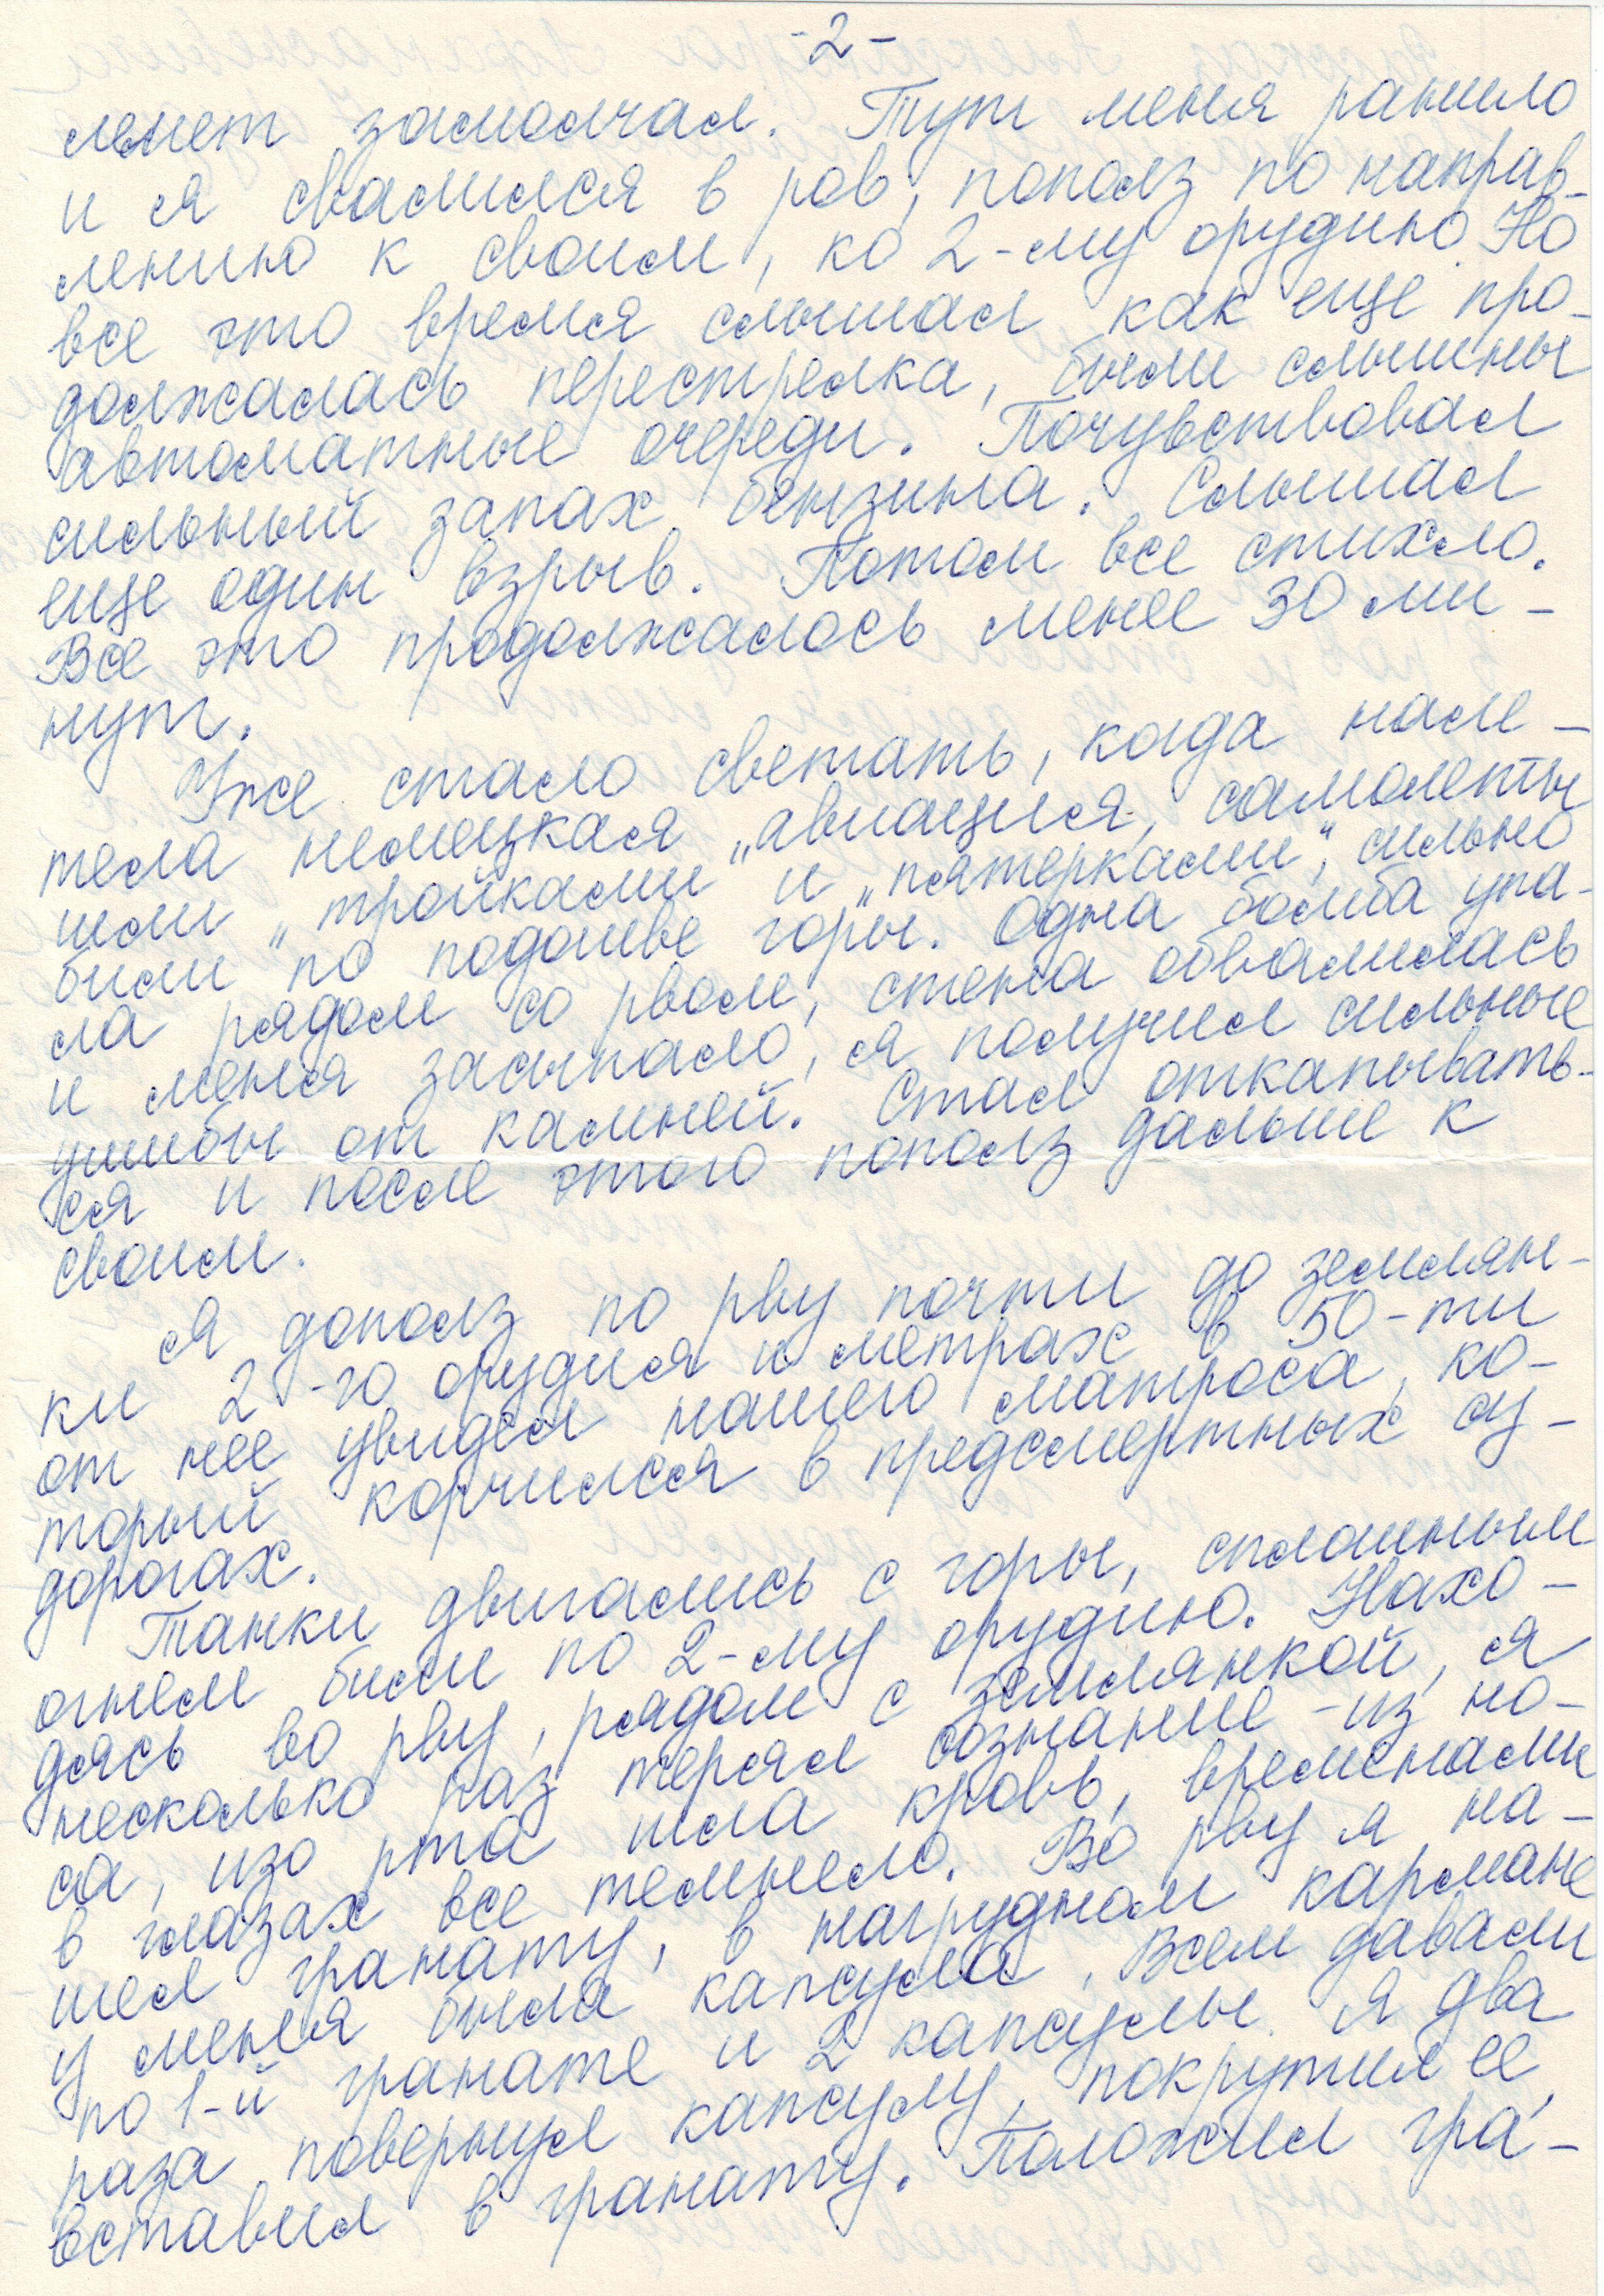 - 2 -
лемет замолчал. Тут меня ранило
и я свалился в ров, пополз по направ-
лению к своим, ко 2-му орудию. Но
все это время слышал как еще про-
должалась перестрелка, были слышны
автоматные очереди. Почувствовал
сильный запах бензина. Слышал
еще один взрыв. Потом все стихло.
Все это продолжалось менее 30 ми-
нут.
Уже стало светать, когда нале-
тела немецкая авиация, самолеты
шли „тройками" и „пятерками", сильно
били по подошве горы. Одна бомба упа-
ла рядом со рвом, стена обвалилась
и меня засыпало, я получил сильные
ушибы от камней. Стал откапывать-
ся и после этого пополз дальше к
своим.
Я дополз по рву почти до землян-
ки 2-го орудия и метрах в 50-ти
от нее увидел нашего матроса, ко-
торый корчился в предсмертных су-
дорогах.
Танки двигались с горы, сплошным
огнем били по 2-му орудию. Нахо-
дясь во рву, рядом с землянкой, я
несколько раз терял сознание - из но-
са, изо рта шла кровь, временами
в глазах все темнело. Во рву я на-
шел гранату, в нагрудном кармане
у меня была капсула. Всем давали
по 1-й гранате и 2 капсулы. Я два
раза повернул капсулу, покрутил ее,
вставил в гранату. Положил гра-